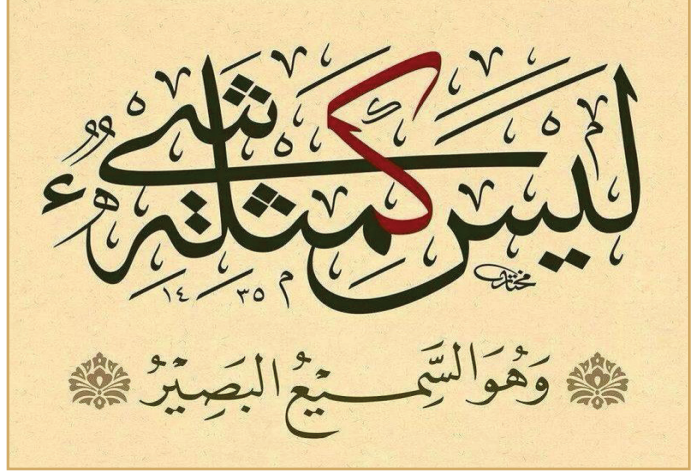 لَيسَ كَمِثلِهِ شَيءٌ
مختار
١٤ ٣٥
وَهُوَ السَّمِيْعُ البَصِيْرُ